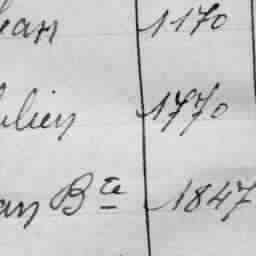 ean 1170
ulien 1770
an Bte 1847